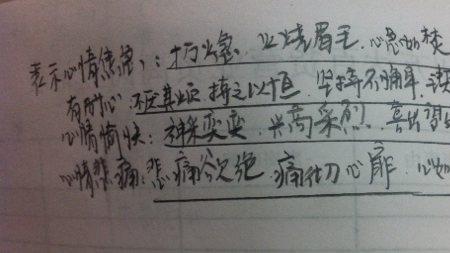 表示心情焦急：十万火急、火烧眉毛、心急如焚
有耐心 不厌其烦 持之以恒 坚持不懈
心情愉快：神采奕奕、兴高采烈、喜出望
心情悲痛：悲痛欲绝、痛彻心扉、心如